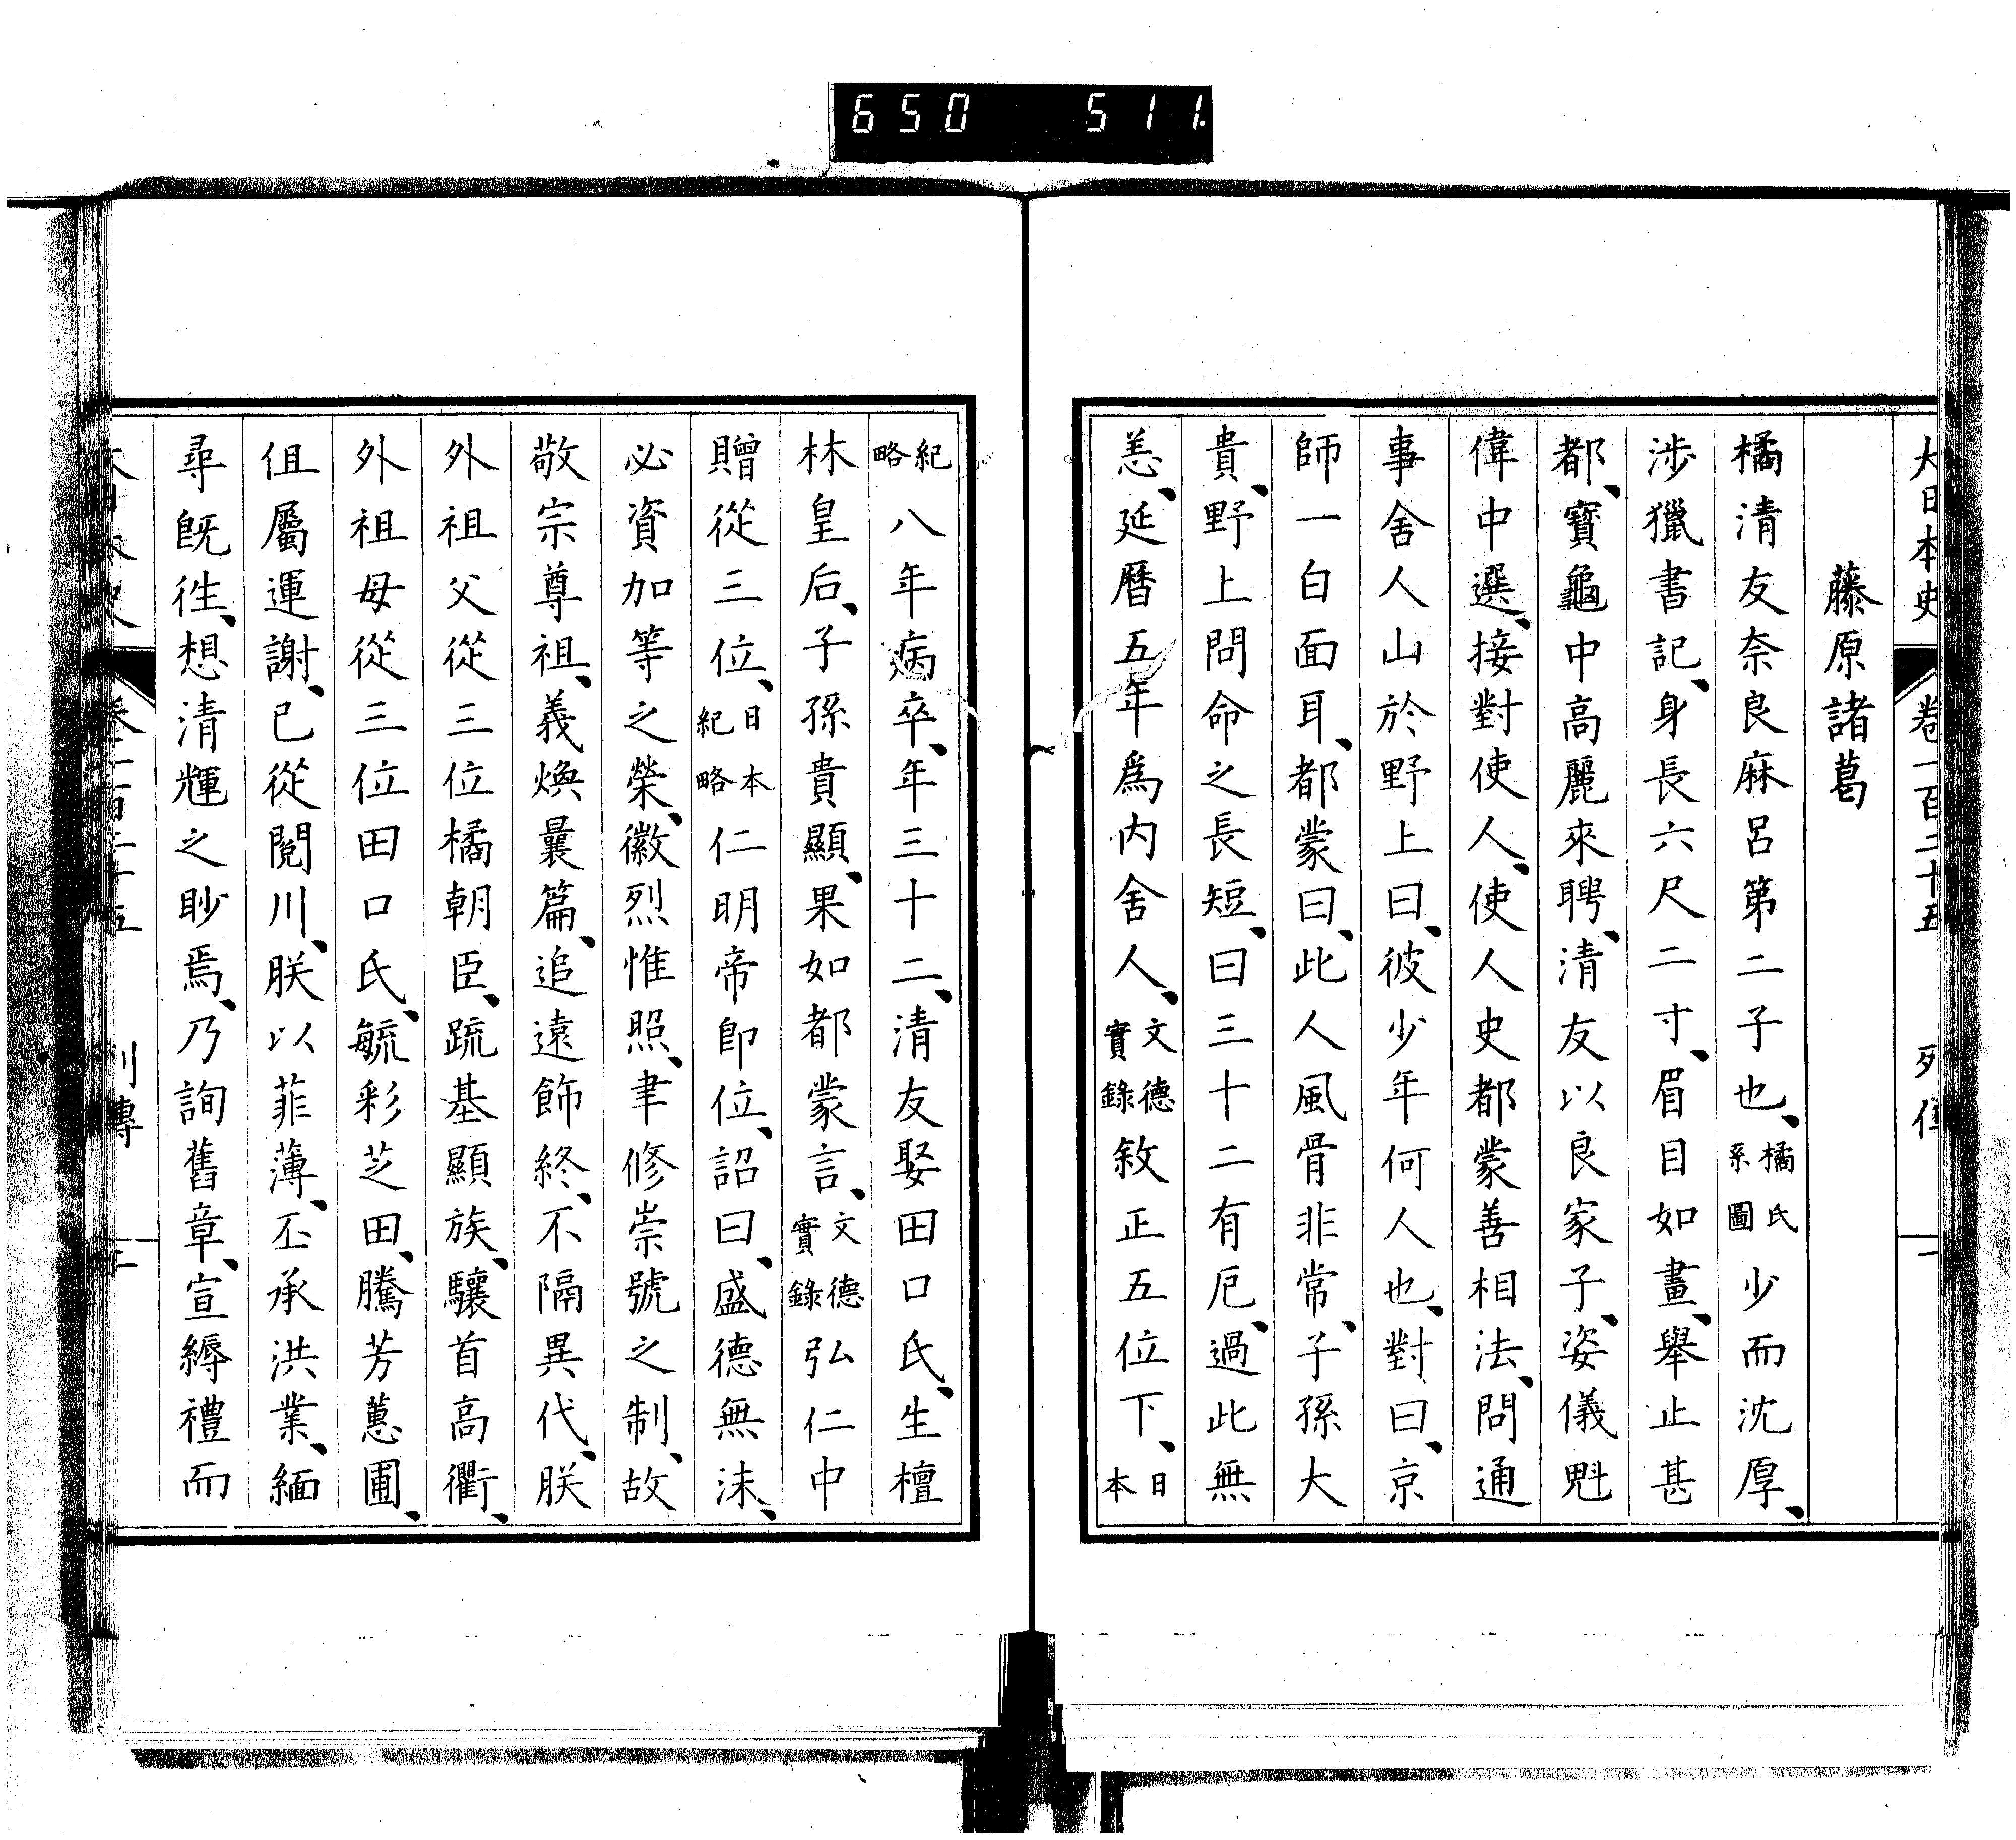 650 511
大日本史 卷一百二十五 列傳 一
藤原諸葛
橘清友奈良麻呂第二子也、橘氏系圖少而沈厚、
涉獵書記、身長六尺二寸、眉目如畫、舉止甚
都、寶龜中高麗來聘、清友以良家子、姿儀魁
偉中選、接對使人、使人史都蒙善相法、問通
事舍人山於野上曰、彼少年何人也、對曰、京
師一白面耳、都蒙曰、此人風骨非常、子孫大
貴、野上問命之長短、曰三十二有厄、過此無
恙、延曆五年爲内舍人、文德實錄敘正五位下、日本
紀略八年病卒、年三十二、清友娶田口氏、生檀
林皇后、子孫貴顯、果如都蒙言、文德實錄弘仁中
贈從三位、日本紀略仁明帝卽位、詔曰、盛德無沬、
必資加等之榮、徽烈惟照、聿修崇號之制、故
敬宗尊祖、義煥曩篇、追遠飾終、不隔異代、朕
外祖父從三位橘朝臣、疏基顯族、驤首高衢、
外祖母從三位田口氏、毓彩芝田、騰芳蕙圃、
但屬運謝、已從閱川、朕以菲薄、丕承洪業、緬
尋旣往、想清輝之眇焉、乃詢舊章、宣縟禮而